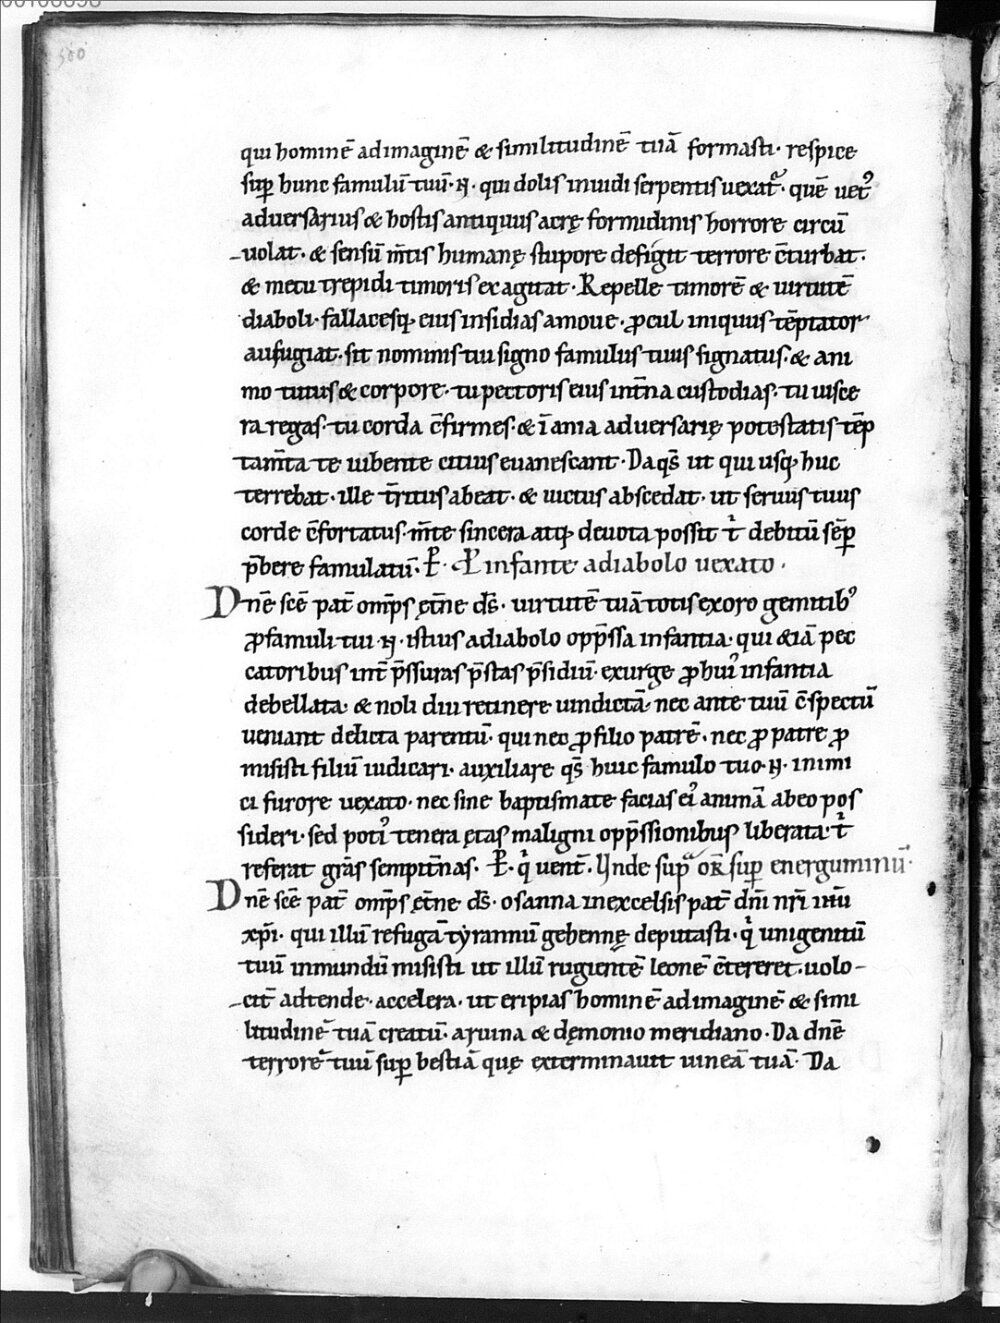 500
qui hominē ad imaginē & similitudinē tuā formasti· respice
suꝑ hunc famulū tuū· N̄· qui dolis inuidi serpentis uexat᷒· quē uet᷒
aduersarius & hostis antiquus acrę formidinis horrore circū
-uolat· & sensū m̄tis humanę stupore defigit terrore c̄turbat·
& metu trepidi timoris exagitat· Repelle timorē & uirtutē
diaboli· fallacesq; eius insidias amoue· ꝓcul iniquus tēptator
aufugiat· sit nominis tui signo famulus tuus signatus· & ani
mo tutus & corpore· tu pectoris eius int̄na custodias· tu uisce
ra regas· tu corda c̄firmes· & ī aniā aduersarię potestatis tēp
tam̄ta te iubente citius euanescant· Da qs̄ ut qui usq; huc
terrebat· ille t̄ritus abeat· & uictus abscedat· ut seruus tuus
corde c̄fortatus· m̄te sincera atq; deuota possit t' debitū sēꝑ
p̄bere famulatū· P̄· Ꝓ infante a diabolo uexato·
Dn̄e sc̄e pat̄ omp̄s ęt̄ne ds̄· uirtutē tuā totis exoro gemitib᷒
ꝓ famuli tui· N̄· istius a diabolo opp̄ssa infantia· qui &iā pec
catoribus int̄ p̄ssuras p̄stas p̄sidiū· exurge ꝓ hui᷒ infantia
debellata· & noli diu retinere uindictā· nec ante tuū c̄spectū
ueniant delicta parentū· qui nec ꝓ filio patrē· nec ꝓ patre ꝓ
misisti filiū iudicari· auxiliare qs̄ huic famulo tuo· N̄· inimi
ci furore uexato· nec sine baptismate facias ei᷒ animā ab eo pos
sideri· sed poti᷒ tenera ętas maligni opp̄ssionibus liberata· t'
referat grās sempit̄nas· P̄· qͥ uent̄· Unde supᵃ oR̄ suꝑ energuminū·
Dn̄e sc̄e pat̄ omp̄s ęt̄ne ds̄· osanna in excelsis pat̄ dn̄i nr̄i ihū
xp̄i· qui illū refugā tẏrannū gehennę deputasti· qͥ unigenitū
tuū in mundū misisti ut illū rugientē leonē c̄tereret· uolo-
-cit̄ adtende· accelera· ut eripias hominē ad imaginē & simi
litudinē tuā creatū· a ruina & dęmonio meridiano· Da dn̄e
terrorē tuū suꝑ bestiā quę exterminauit uineā tuā· Da